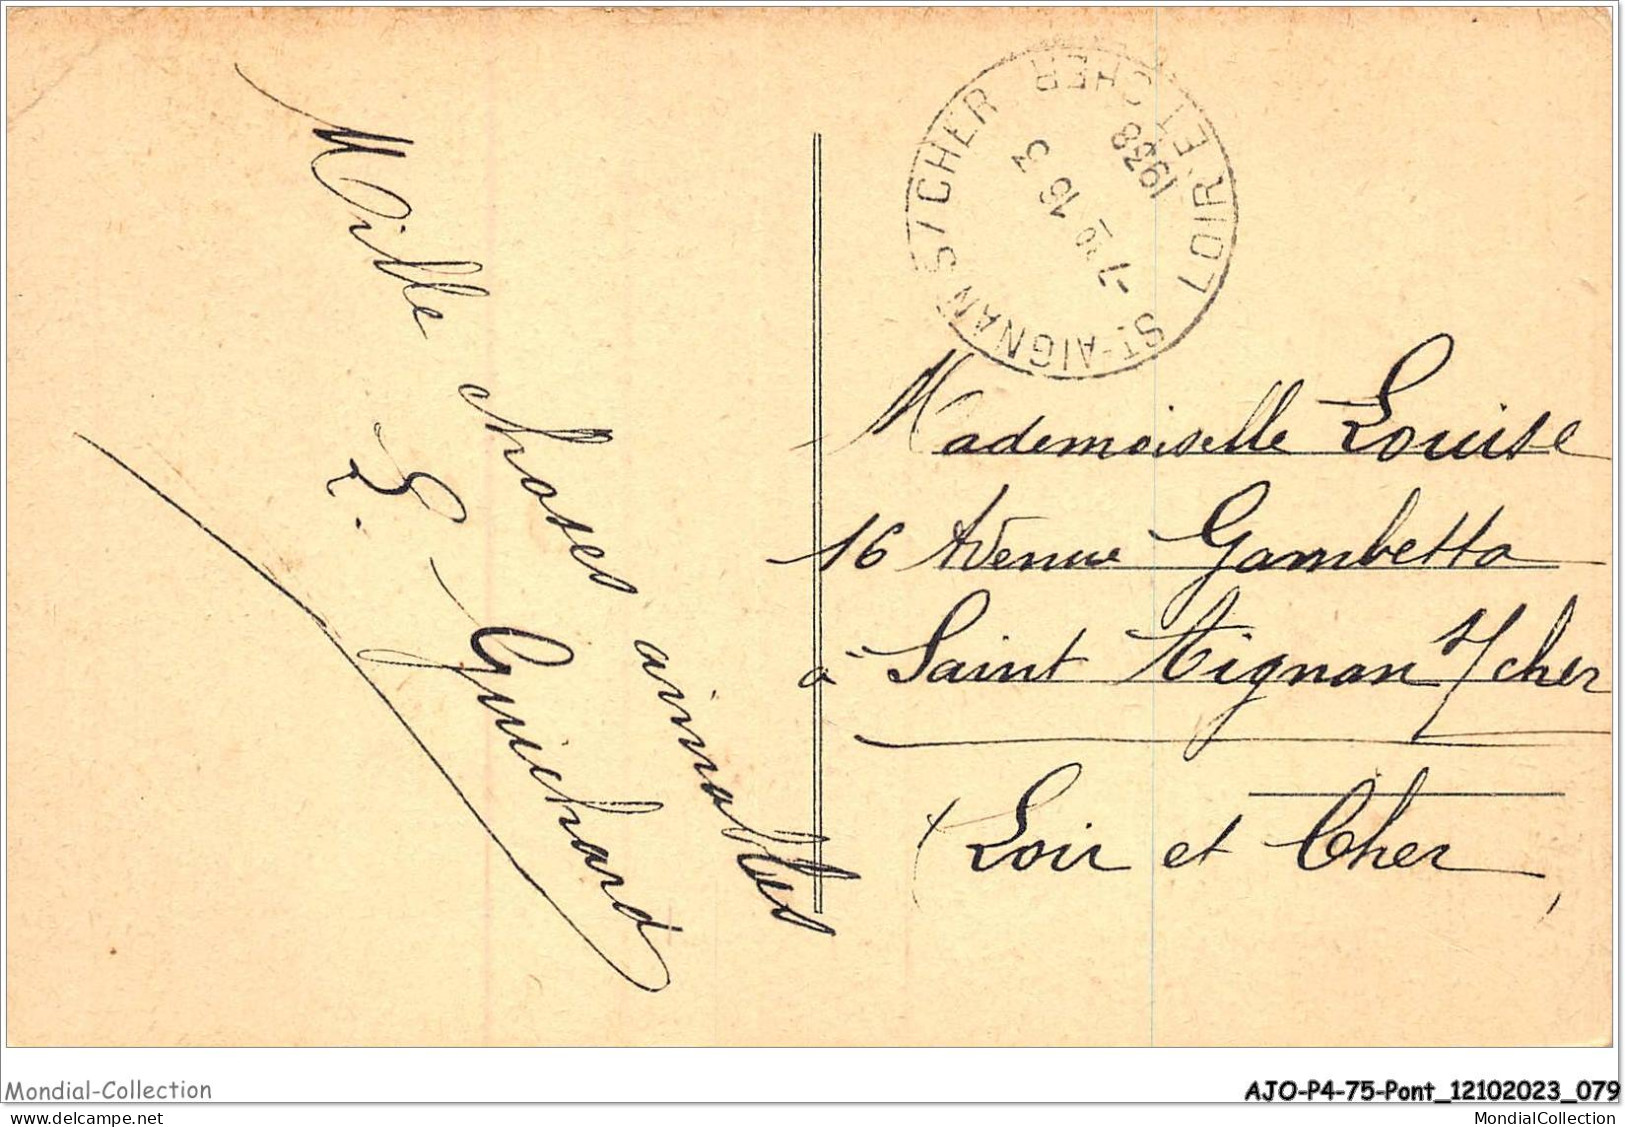 Mille choses aimables
L. Guichard
ST-AIGNAN S/CHER LOIR ET CHER
1938
Mademoiselle Louise
16 Avenue Gambetta
à Saint Aignan s/cher
(Loir et Cher)
Mondial-Collection
AJO-P4-75-Pont_12102023_079
delcampe.net
MondialCollection